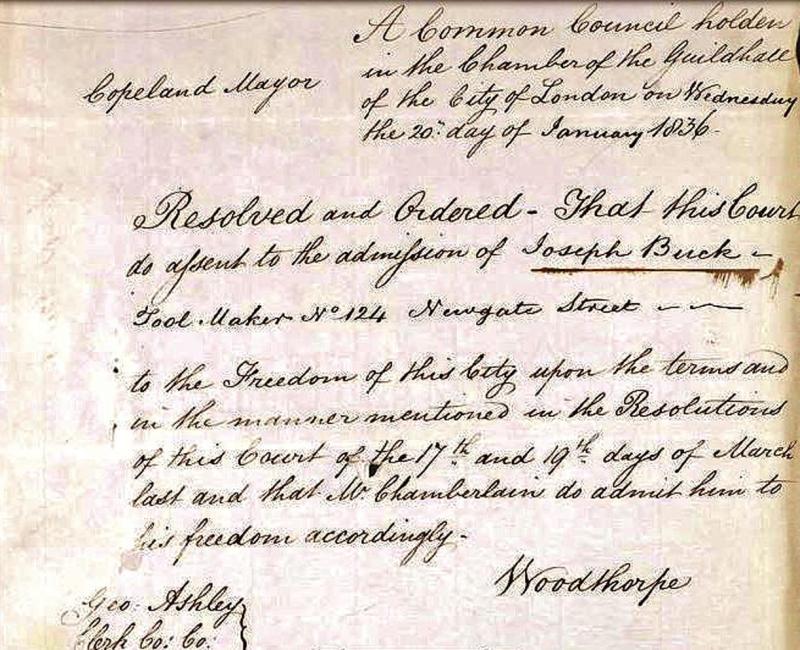 A Common Council holden
in the Chamber of the Guildhall
Copeland Mayor
of the City of London on Wednesday
the 20th day of January 1836-
Resolved and Ordered - That this Court
do assent to the admission of Joseph Buck -
Tool Maker No 124 Newgate Street
to the Freedom of this City upon the terms and
in the manner mentioned in the Resolutions
of this Court of the 17th and 19th days of March
last and that Mr Chamberlain do admit him to
his freedom accordingly -
Woodthorpe
Geo: Ashley
Clerk Co: Co: